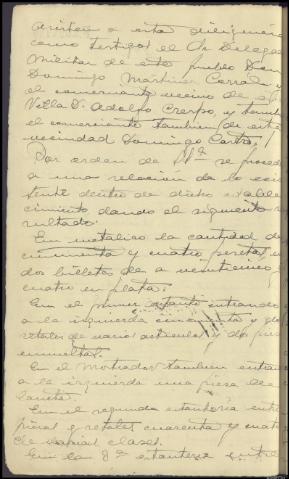 asisten a esta diligencia
como testigos el Sr Delegado
Militar de este pueblo Don
Domingo Martinez Corral y
el comerciante vecino de
Villa D. Adolfo Crespo, y tambien
el comerciante tambien de esta
vecindad Domingo Castro,
Por orden de Sª se procede
a una relacion de lo exis
tente dentro de dicho estable
cimiento dando el siguiente re
sultado:
En metalico la cantidad de
cincuenta y cuatro pesetas en
dos billetes de a veinticinco y
cuatro en plata:
En el primer estante entrando
a la izquierda cincuenta y
retales de varios articulos y dos
En el mostrador tambien entran
a la izquierda una pieza de
En el segunda estanteria entre
piezas y retales cuarenta y cuatro
de varias clases.
En la 3ª estanteria entre